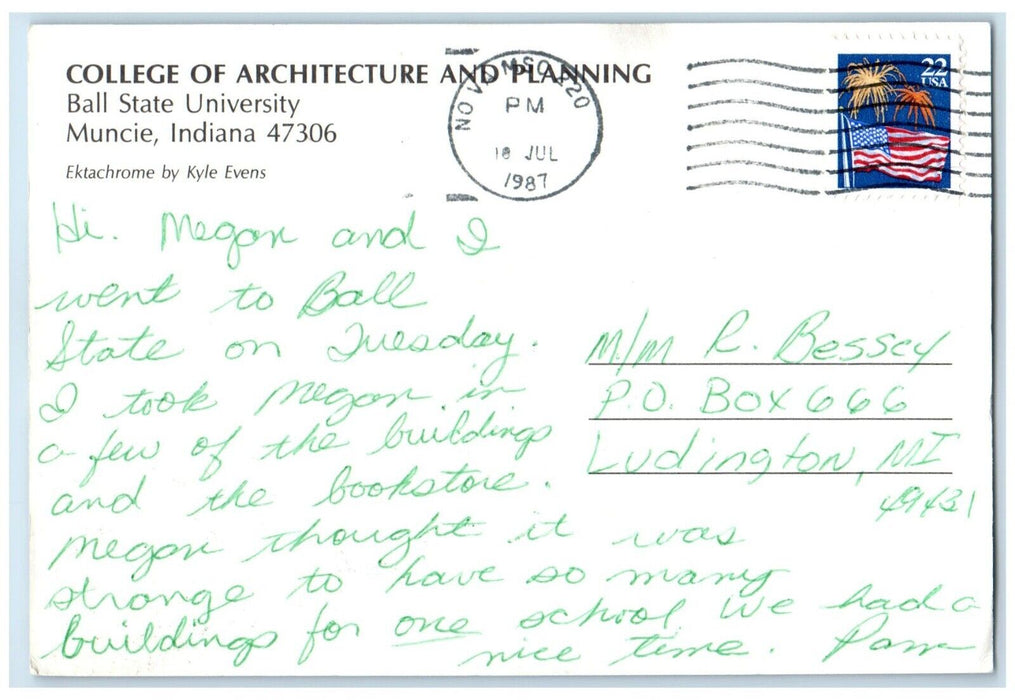 COLLEGE OF ARCHITECTURE AND PLANNING
Ball State University
Muncie, Indiana 47306
Ektachrome by Kyle Evens
PM
18 JUL
1987
22
USA
Hi. Megan and I
went to Ball
State on Tuesday.
I took Megan in
a few of the buildings
and the bookstore.
Megan thought it was
strange to have so many
buildings for one school. We had a
nice time. Pam
M/M R. Bessey
P.O. BOX 666
Ludington, MI
49431